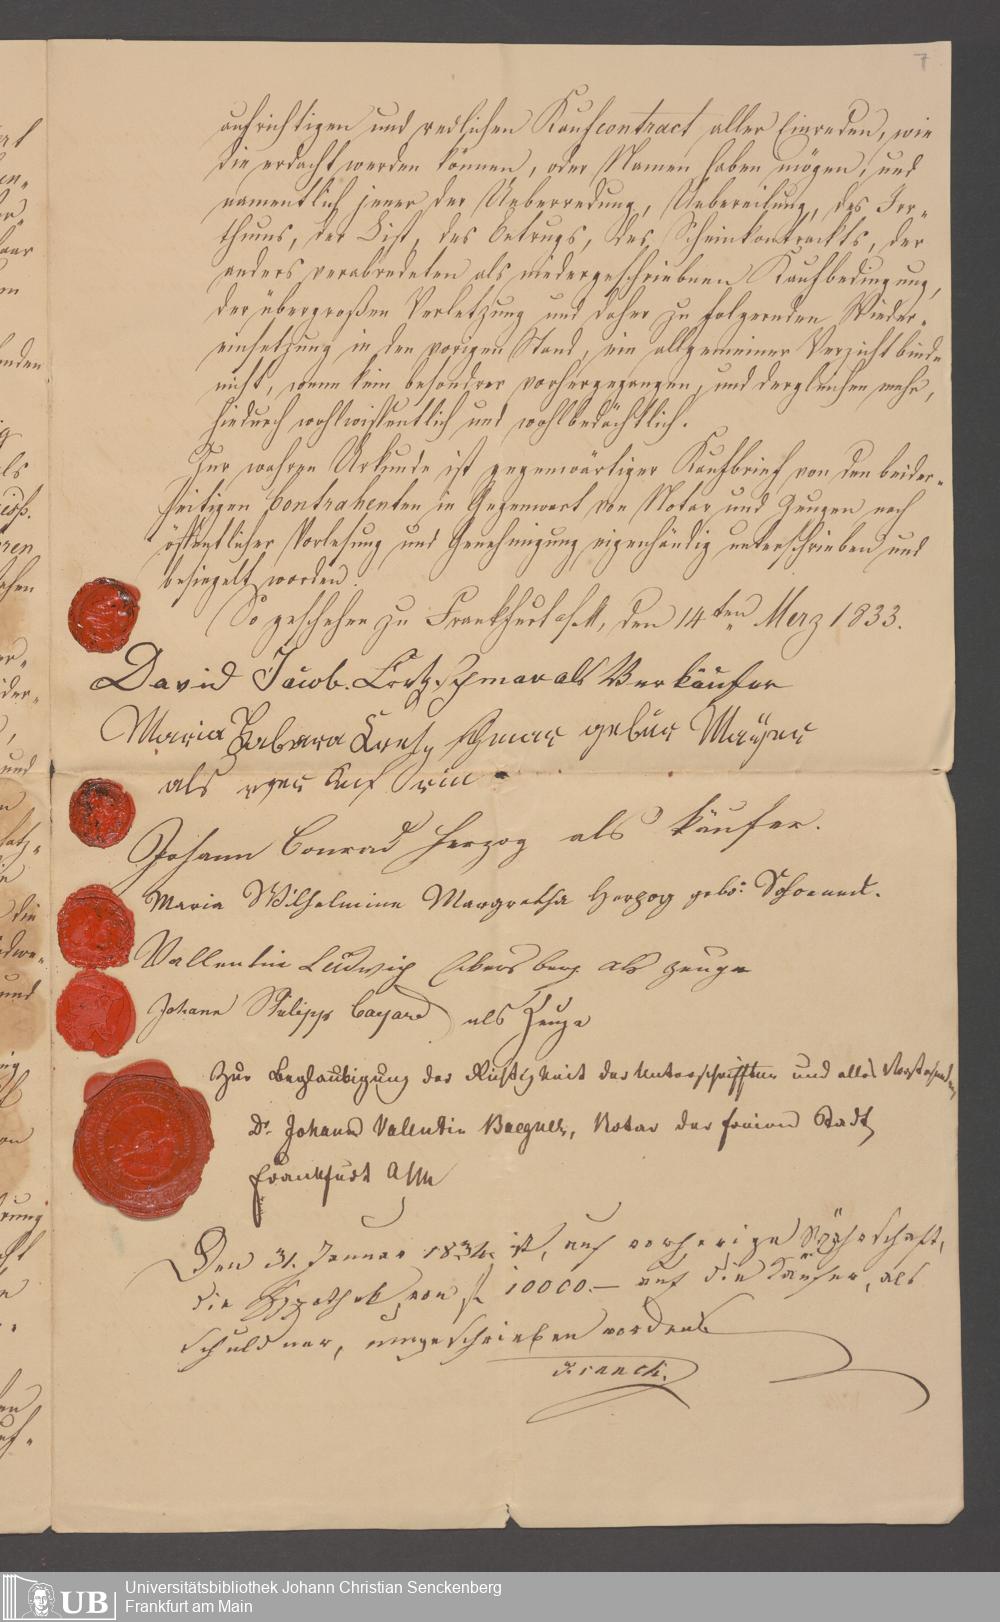 7
aufrichtigen und redlichen Kaufcontract aller Einreden, wie
sie erdacht werden können, oder Namen haben mögen, und
namentlich jener der Ueberredung, Uebereilung, des Irr-
thums, der List, des Betrugs, des Scheinkontrackts, der
anders verabredeten als niedergeschriebnen Kaufbedingung,
der übergroßen Verletzung und daher zu folgernden Wieder-
einsetzung in den vorigen Stand, ein allgemeiner Verzicht binde
nicht, wenn kein besondrer vorhergegangen, und dergleichen mehr,
hiedurch wohlwissentlich und wohlbedächtlich.
Zur wahren Urkunde ist gegenwärtiger Kaufbrief von den beider-
seitigen Contrahenten in Gegenwart von Notar und Zeugen nach
öffentlicher Vorlesung und Genehmigung eigenhändig unterschrieben und
besiegelt worden.
So geschehen zu Frankfurt a/M, den 14ten Merz 1833.
David Jacob als Verkäufer
Maria Barbara gebür Mayer
als
Johann Conrad Herzog als Käufer.
Maria Wilhelmine Margretha Herzog geb:
Vallentin Ludwig Ebersberg als zeuge
Johann Philipp Cayard als Zeuge
Zur Beglaubigung der Richtigkeit der Unterschriften und alles Vorstehenden
Dr. Johann Valentin Notar der freien Stadt
Frankfurt a/m
Den 31. Januar 1834 ist, auf vorherige Währschaft,
die Hypothek von fl 10000.— auf die Käufer, als
Schuldner, eingeschrieben worden.
Franck.
UB
Universitätsbibliothek Johann Christian Senckenberg
Frankfurt am Main